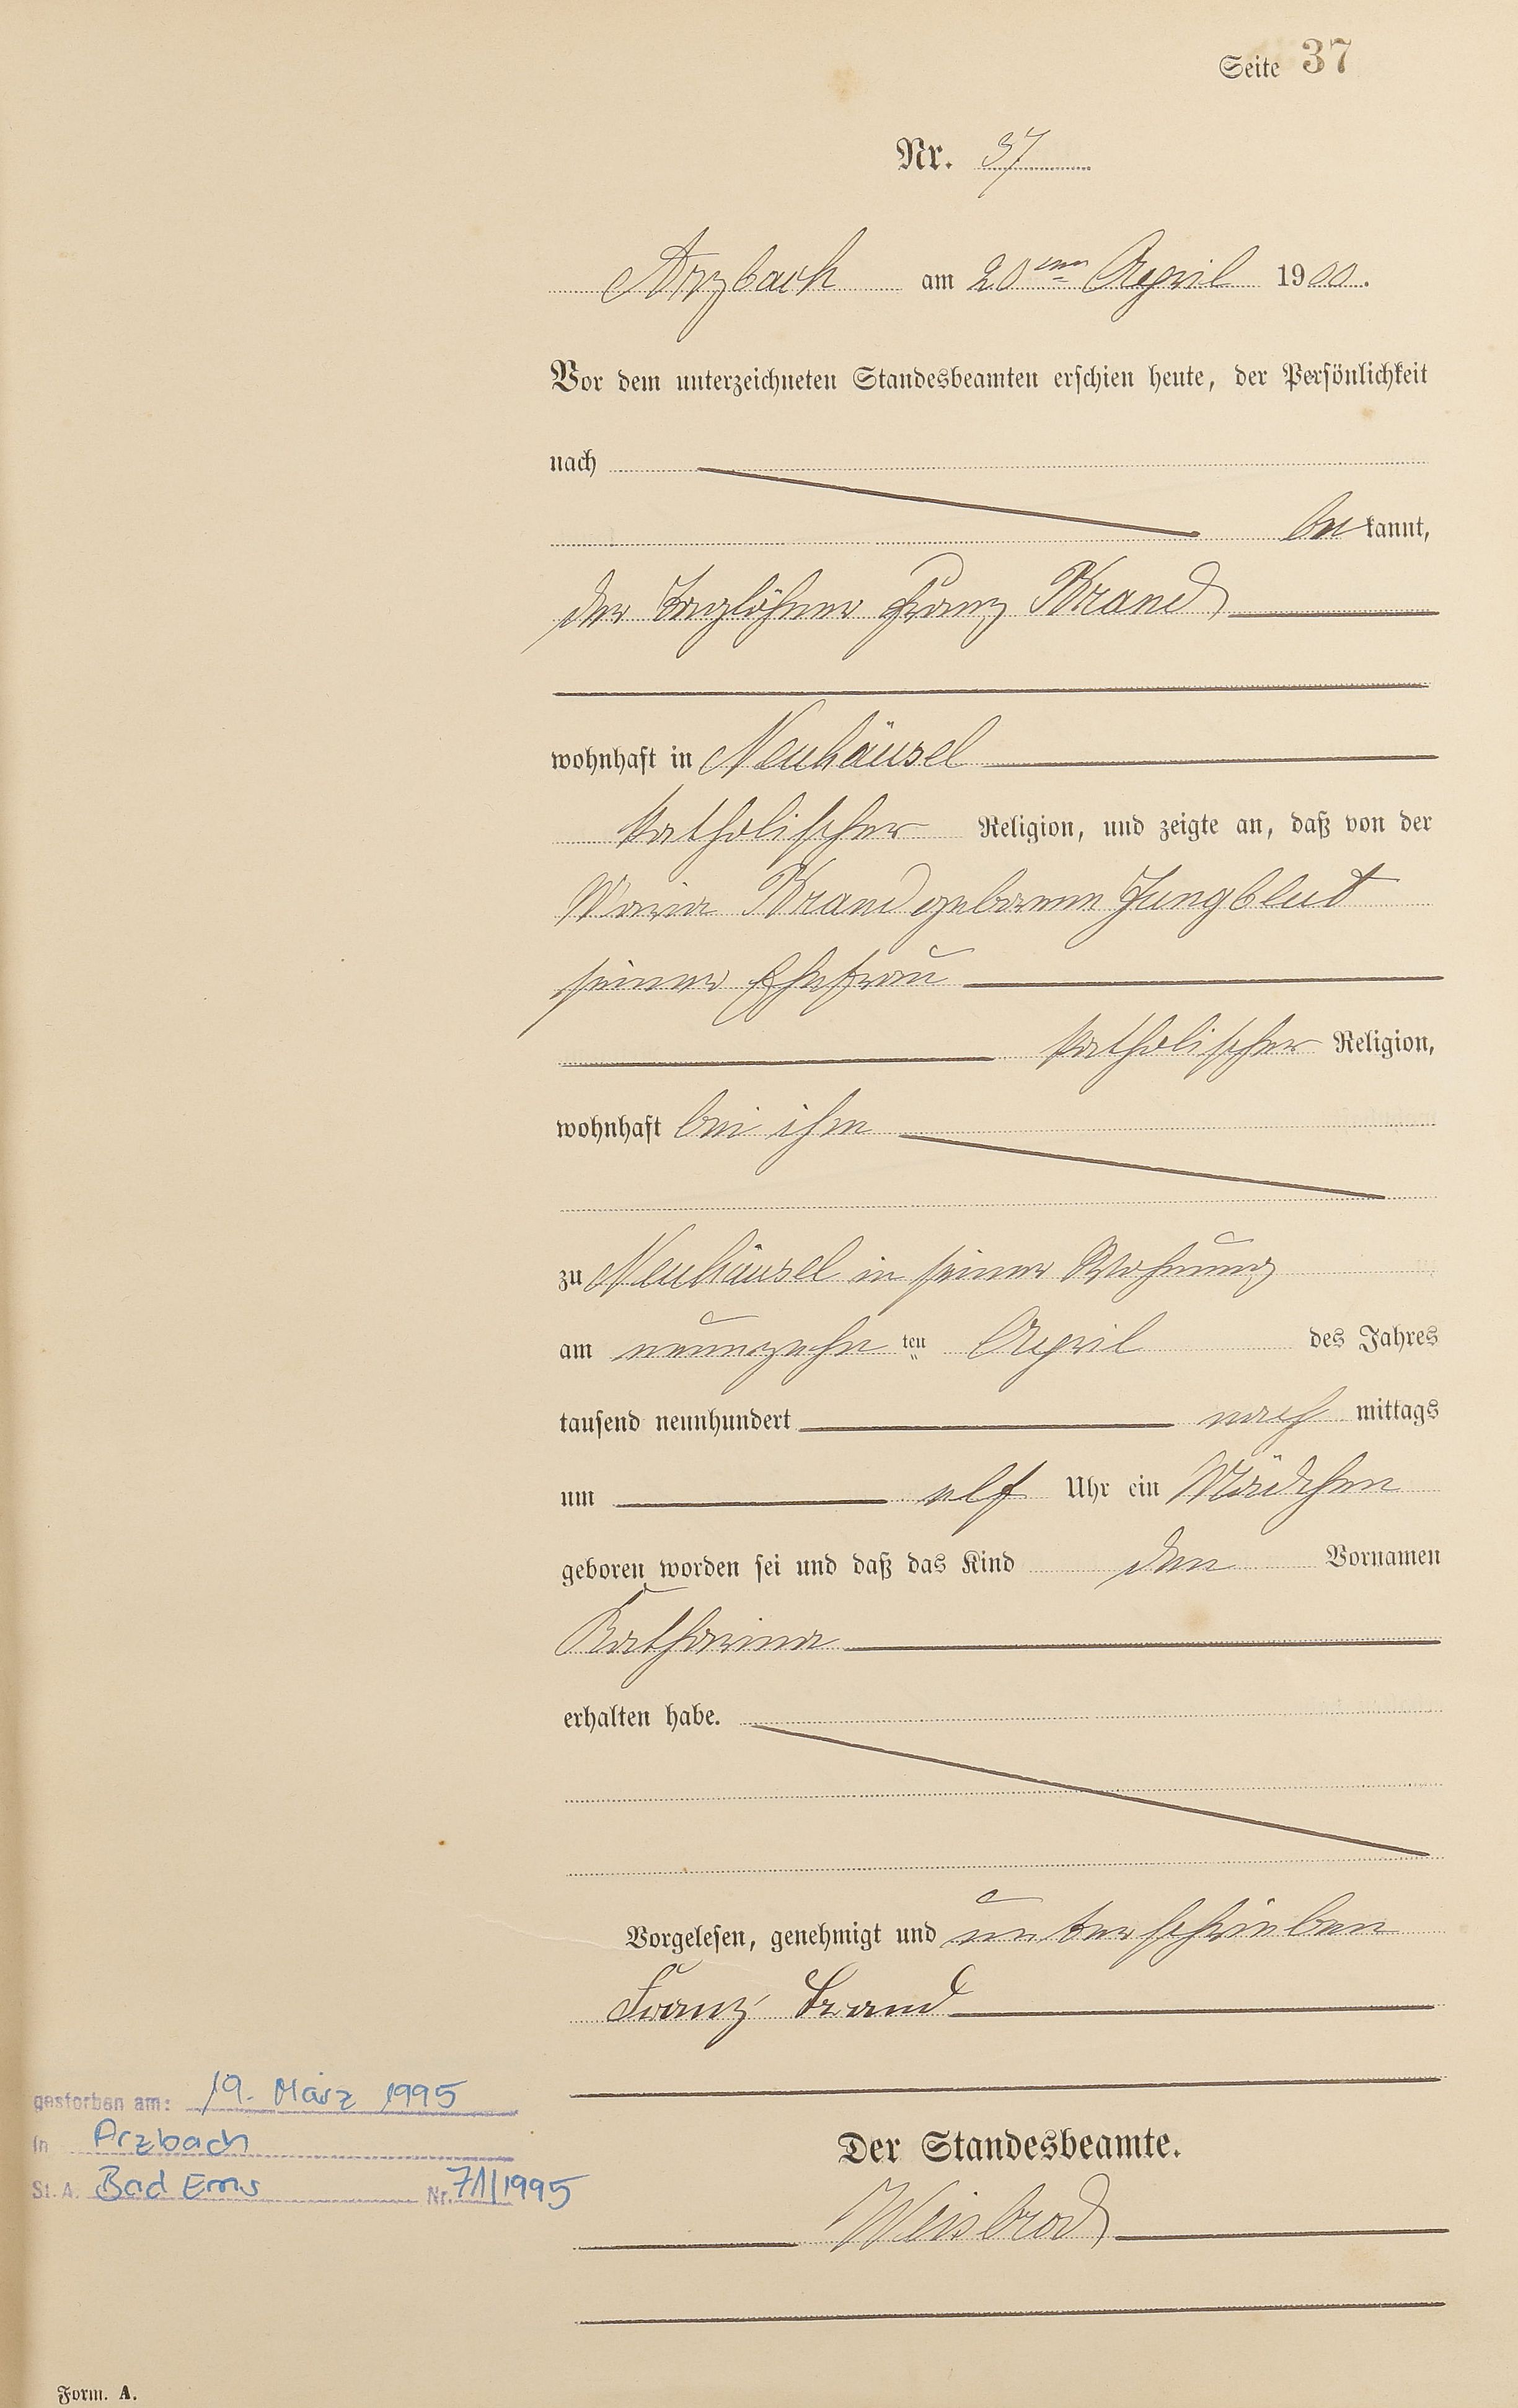 Seite 37
Nr. 37
Arzbach am 20ten April 1900.
Vor dem unterzeichneten Standesbeamten erschien heute, der Persönlichkeit
nach
bekannt,
der Taglöhner Franz Brand
wohnhaft in Neuhäusel
katholischer Religion, und zeigte an, daß von der
Maria Brand geborene Jungblut
seiner Ehefrau
katholischer Religion,
wohnhaft bei ihm
zu Neuhäusel in seiner Wohnung
am neunzehnten April des Jahres
tausend neunhundert nachmittags
um elf Uhr ein Mädchen
geboren worden sei und daß das Kind den Vornamen
Katharina
erhalten habe.
Vorgelesen, genehmigt und unterschrieben
Franz Brand
gestorben am: 19. März 1995
in Arzbach
St. A. Bad Ems Nr. 71/1995
Der Standesbeamte.
Weisbrod
Form. A.